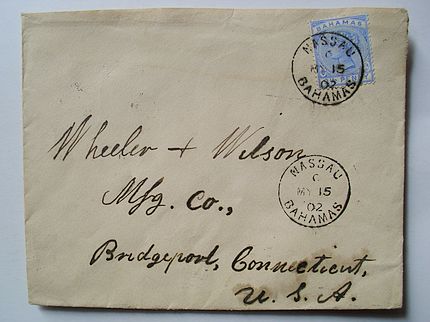 BAHAMAS
NASSAU
C
MY 15
02
BAHAMAS
Wheeler + Wilson
Mfg. Co.,
NASSAU
C
MY 15
02
BAHAMAS
Bridgeport, Connecticut,
U. S. A.